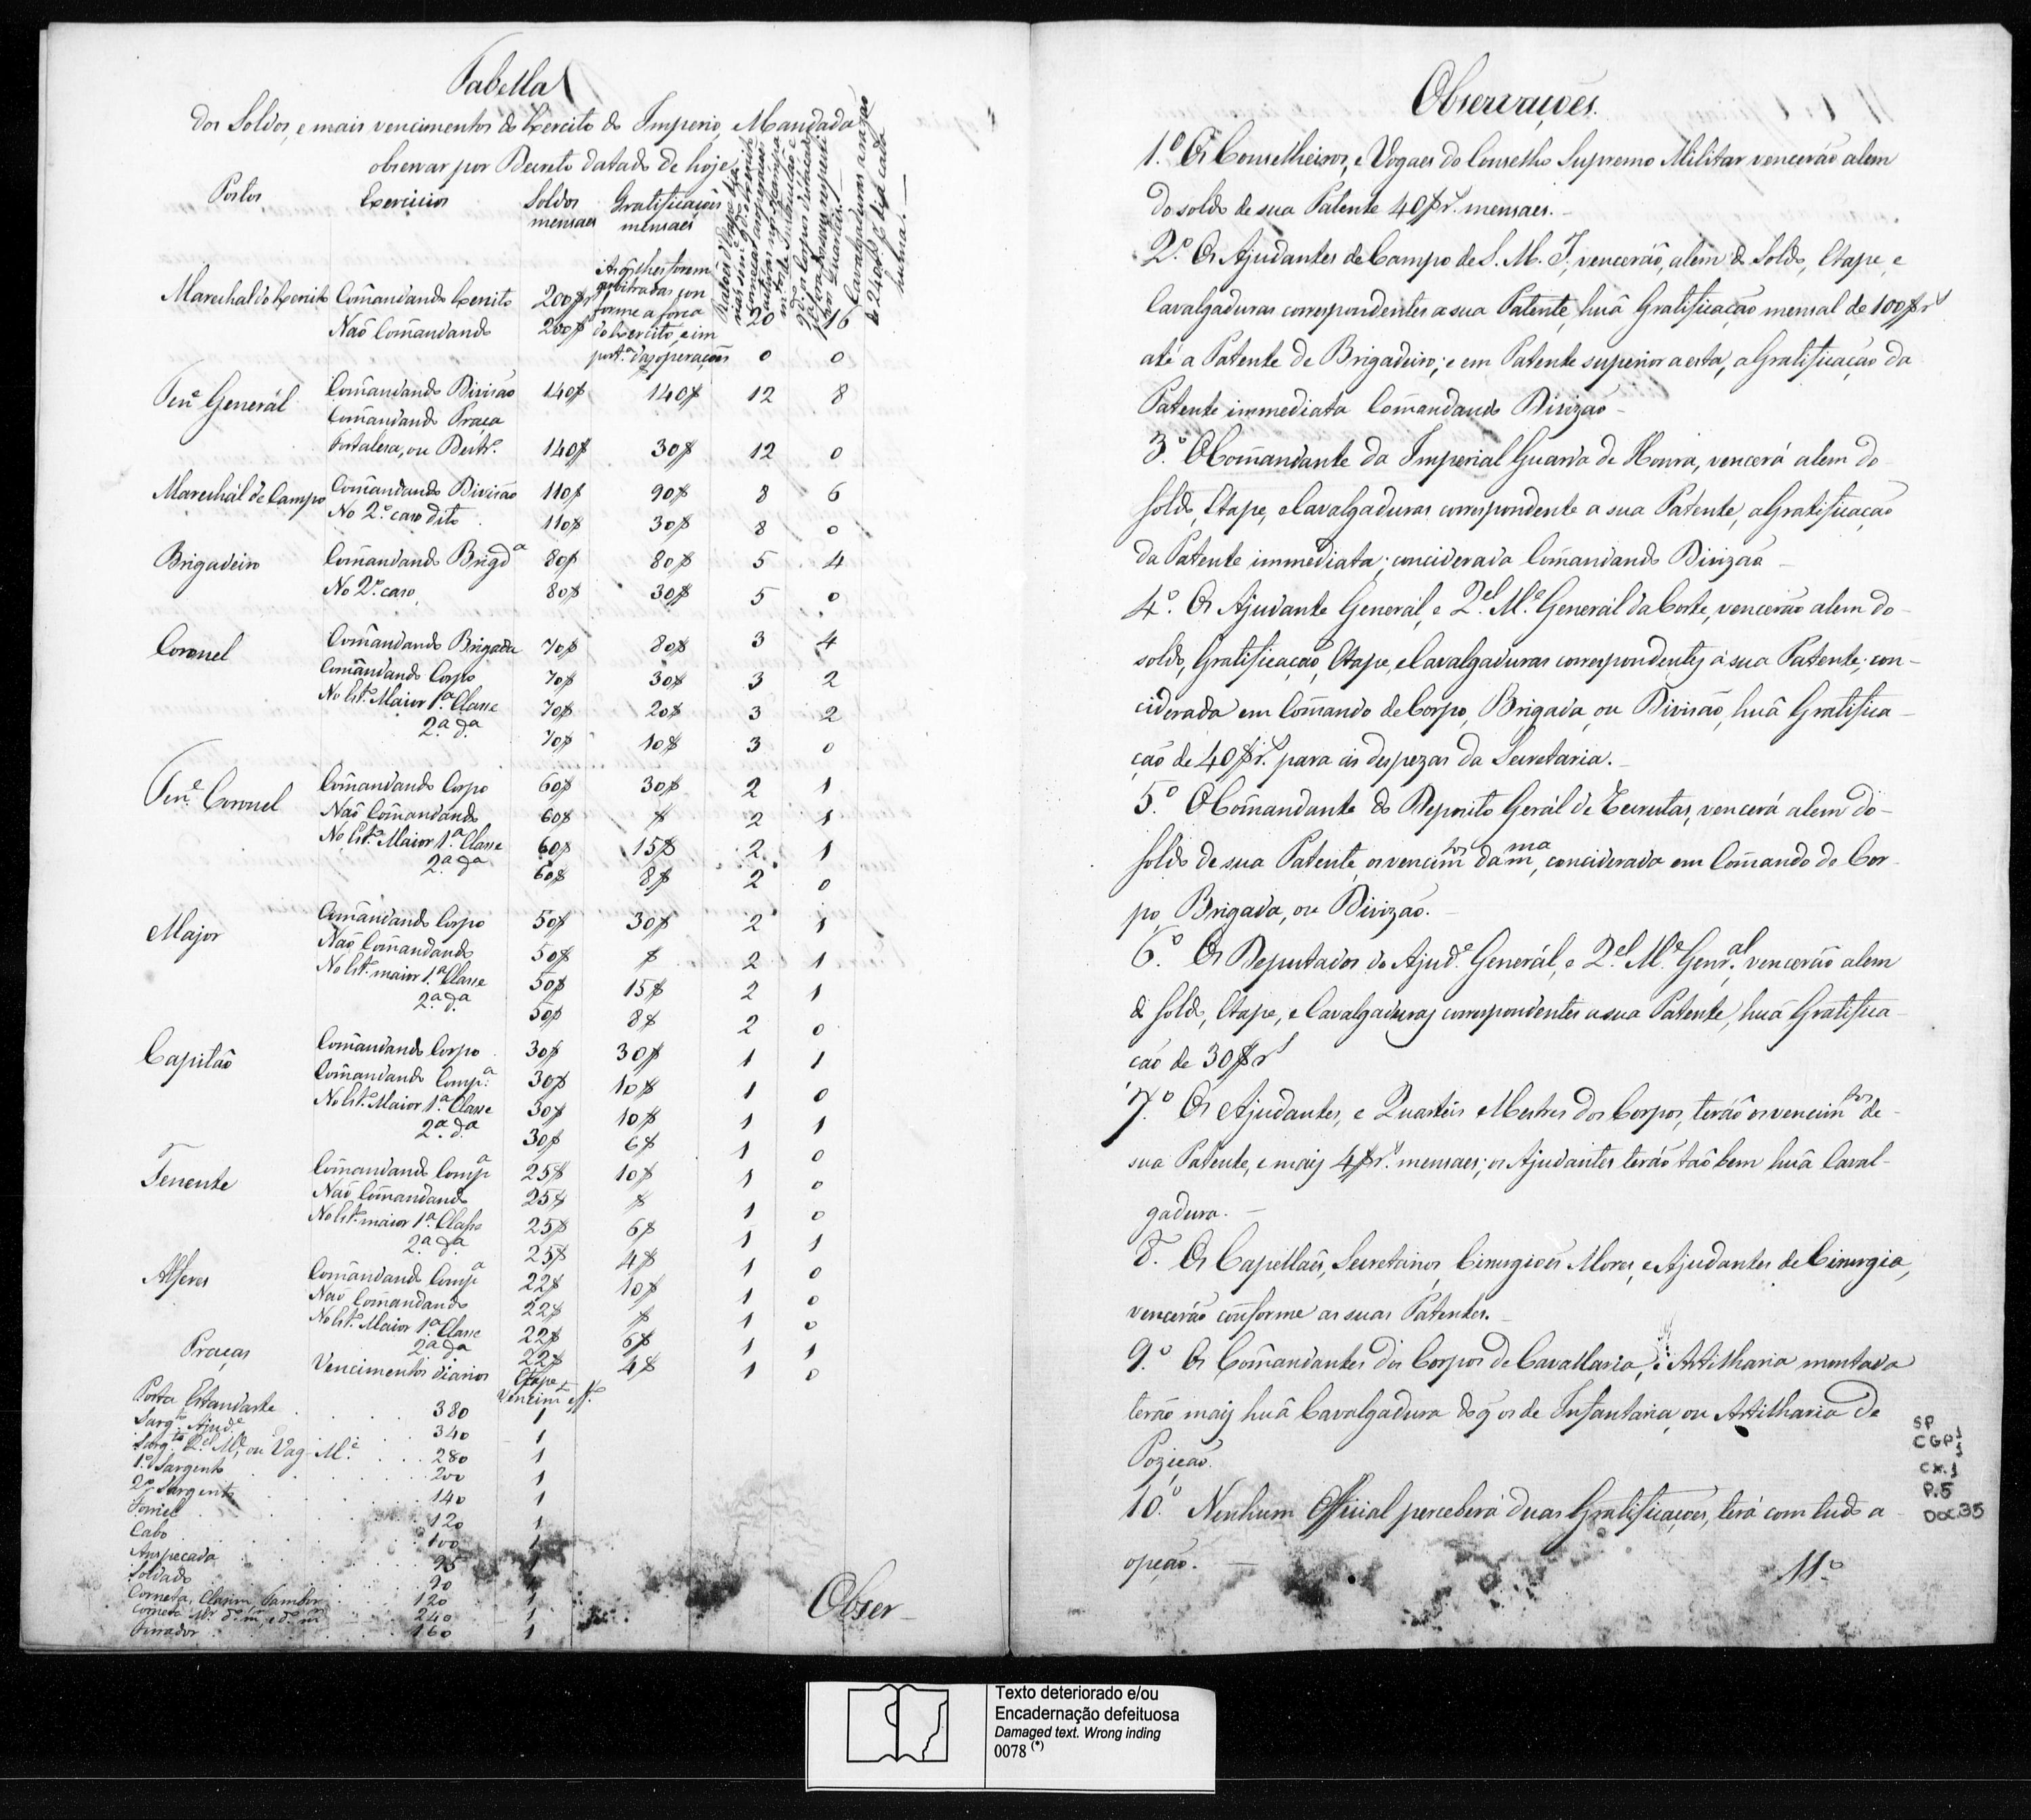 Tabella
dos Soldos, e mais vencimentos do Exercito do Imperio, Mandada
observar por Decreto datado de hoje
Postos Exercicios Soldos mensaes Gratificaçoẽs mensaes
Cavalgaduras a razaõ de 240 r.s p.r dia cada huma. —
Marechal do Exercito Comãndando Exercito 200$r.s As q̃ lhes forem arbitradas conforme a força do Exercito, e import.a das operaçoẽs 20 16
Naõ Comãndando 200$ 0 0
Ten.e Generál Comãndando Divisaõ 140$ 140$ 12 8
Comãndando Praça
Fortaleza, ou Destr.o 140$ 30$ 12 0
Marechál de Campo Comãndando Divisaõ 110$ 90$ 8 6
No 2.o caso dito 110$ 30$ 8 0
Brigadeiro Comãndando Brigd.a 80$ 80$ 5 4
No 2.o caso 80$ 30$ 5 0
Coronel Comãndando Brigada 70$ 80$ 3 4
Comãndando Corpo 70$ 30$ 3 2
No Est.o Maior 1.a Classe 70$ 20$ 3 2
2.a d.a 70$ 10$ 3 0
Ten.e Coronel Comãndando Corpo 60$ 30$ 2 1
Naõ Comãndando 60$ $ 2 1
No Est.o Maior 1.a Classe 60$ 15$ 2 1
2.a d.a 60$ 8$ 2 0
Major Comãndando Corpo 50$ 30$ 2 1
Naõ Comãndando 50$ $ 2 1
No Est.o maior 1.a Classe 50$ 15$ 2 1
2.a d.a 50$ 8$ 2 0
Capitaõ Comãndando Corpo 30$ 30$ 1 1
Comãndando Comp.a 30$ 10$ 1 0
No Est.o Maior 1.a Classe 30$ 10$ 1 1
2.a d.a 30$ 6$ 1 0
Tenente Comãndando Comp.a 25$ 10$ 1 0
Naõ Comãndando 25$ $ 1 0
No Est.o maior 1.a Classe 25$ 6$ 1 1
2.a d.a 25$ 4$ 1 0
Alferes Comãndando Comp.a 22$ 10$ 1 0
Naõ Comãndando 22$ $ 1 0
No Est.o Maior 1.a Classe 22$ 6$ 1 1
2.a d.a 22$ 4$ 1 0
Praças Vencimentos diarios Etape
Porta Estandarte 380 1
Sarg.to Ajud.e 340 1
Sarg.to Q.el M.e, ou Vag-M.e 280 1
1.o Sargento 200 1
2.o Sargento 140 1
Forriel 120 1
Cabo 100 1
Anspecada 95 1
Soldado 90 1
Corneta, Clarim, Tambor 120 1
Corneta M.r d.o m.r, e d.o m.r 240 1
Ferrador 160 1
Obser-
Observaçoẽs.
1.o Os Conselheiros, e Vogaes do Conselho Supremo Militar vencerão alem
do soldo de sua Patente 40$r.s mensaes. —
2.o Os Ajudantes de Campo de S. M. I., venceraõ, alem do Soldo, Etape, e
Cavalgaduras correspondentes a sua Patente, huã Gratificaçaõ mensal de 100$r.s
até a Patente de Brigadeiro; e em Patente superior a esta, a Gratificaçaõ da
Patente immediata Comãndando Divizaõ —
3.o O Comãndante da Imperial Guarda de Honra, vencerá alem do
Soldo, Etape, e Cavalgaduras correspondente a sua Patente, a Gratificaçaõ
da Patente immediata; conciderada Comãndando Divizaõ —
4.o Os Ajudante Generál, e Q.el M.e Generál da Corte, vencerão alem do
soldo, Gratificaçaõ, Etape, e Cavalgaduras correspondentes á sua Patente; con-
ciderada em Comãndo de Corpo, Brigada, ou Divisaõ, huã Gratifica-
çaõ de 40$r.s para as despezas da Secretaria. —
5.o O Comãndante do Deposito Gerál de Recrutas, vencerá alem do
Soldo de sua Patente, os vencim.tos da m.ma, conciderada em Comãndo de Cor-
po, Brigada, ou Divizaõ. —
6.o Os Deputados do Ajud.e Generál, e Q.el M.e Gener.al, vencerão alem
do Soldo, Etape, e Cavalgaduras correspondentes a sua Patente, huã Gratifica-
caõ de 30$r.s
7.o Os Ajudantes, e Quarteis Mestres dos Corpos, teraõ os vencim.tos de
sua Patente, e mais 4$r.s mensaes; os Ajudantes teraõ taõ bem huã Caval-
gadura. —
8.o Os Capellaẽs, Secretarios, Cirurgioẽs Mores, e Ajudantes de Cirurgia,
venceraõ conforme as suas Patentes. —
9.o Os Comãndantes dos Corpos de Cavallaria, e Artilharia montada
teraõ mais huã Cavalgadura do q̃ os de Infantaria, ou Artilharia de
Poziçaõ.
10.o Nenhum Official perceberá duas Gratificaçoẽs, terá com tudo a
opçaõ. —
11.o
SP
CGP1
1
CX.1
P.5
DOC.35
Texto deteriorado e/ou
Encadernação defeituosa
Damaged text. Wrong inding
0078 (*)